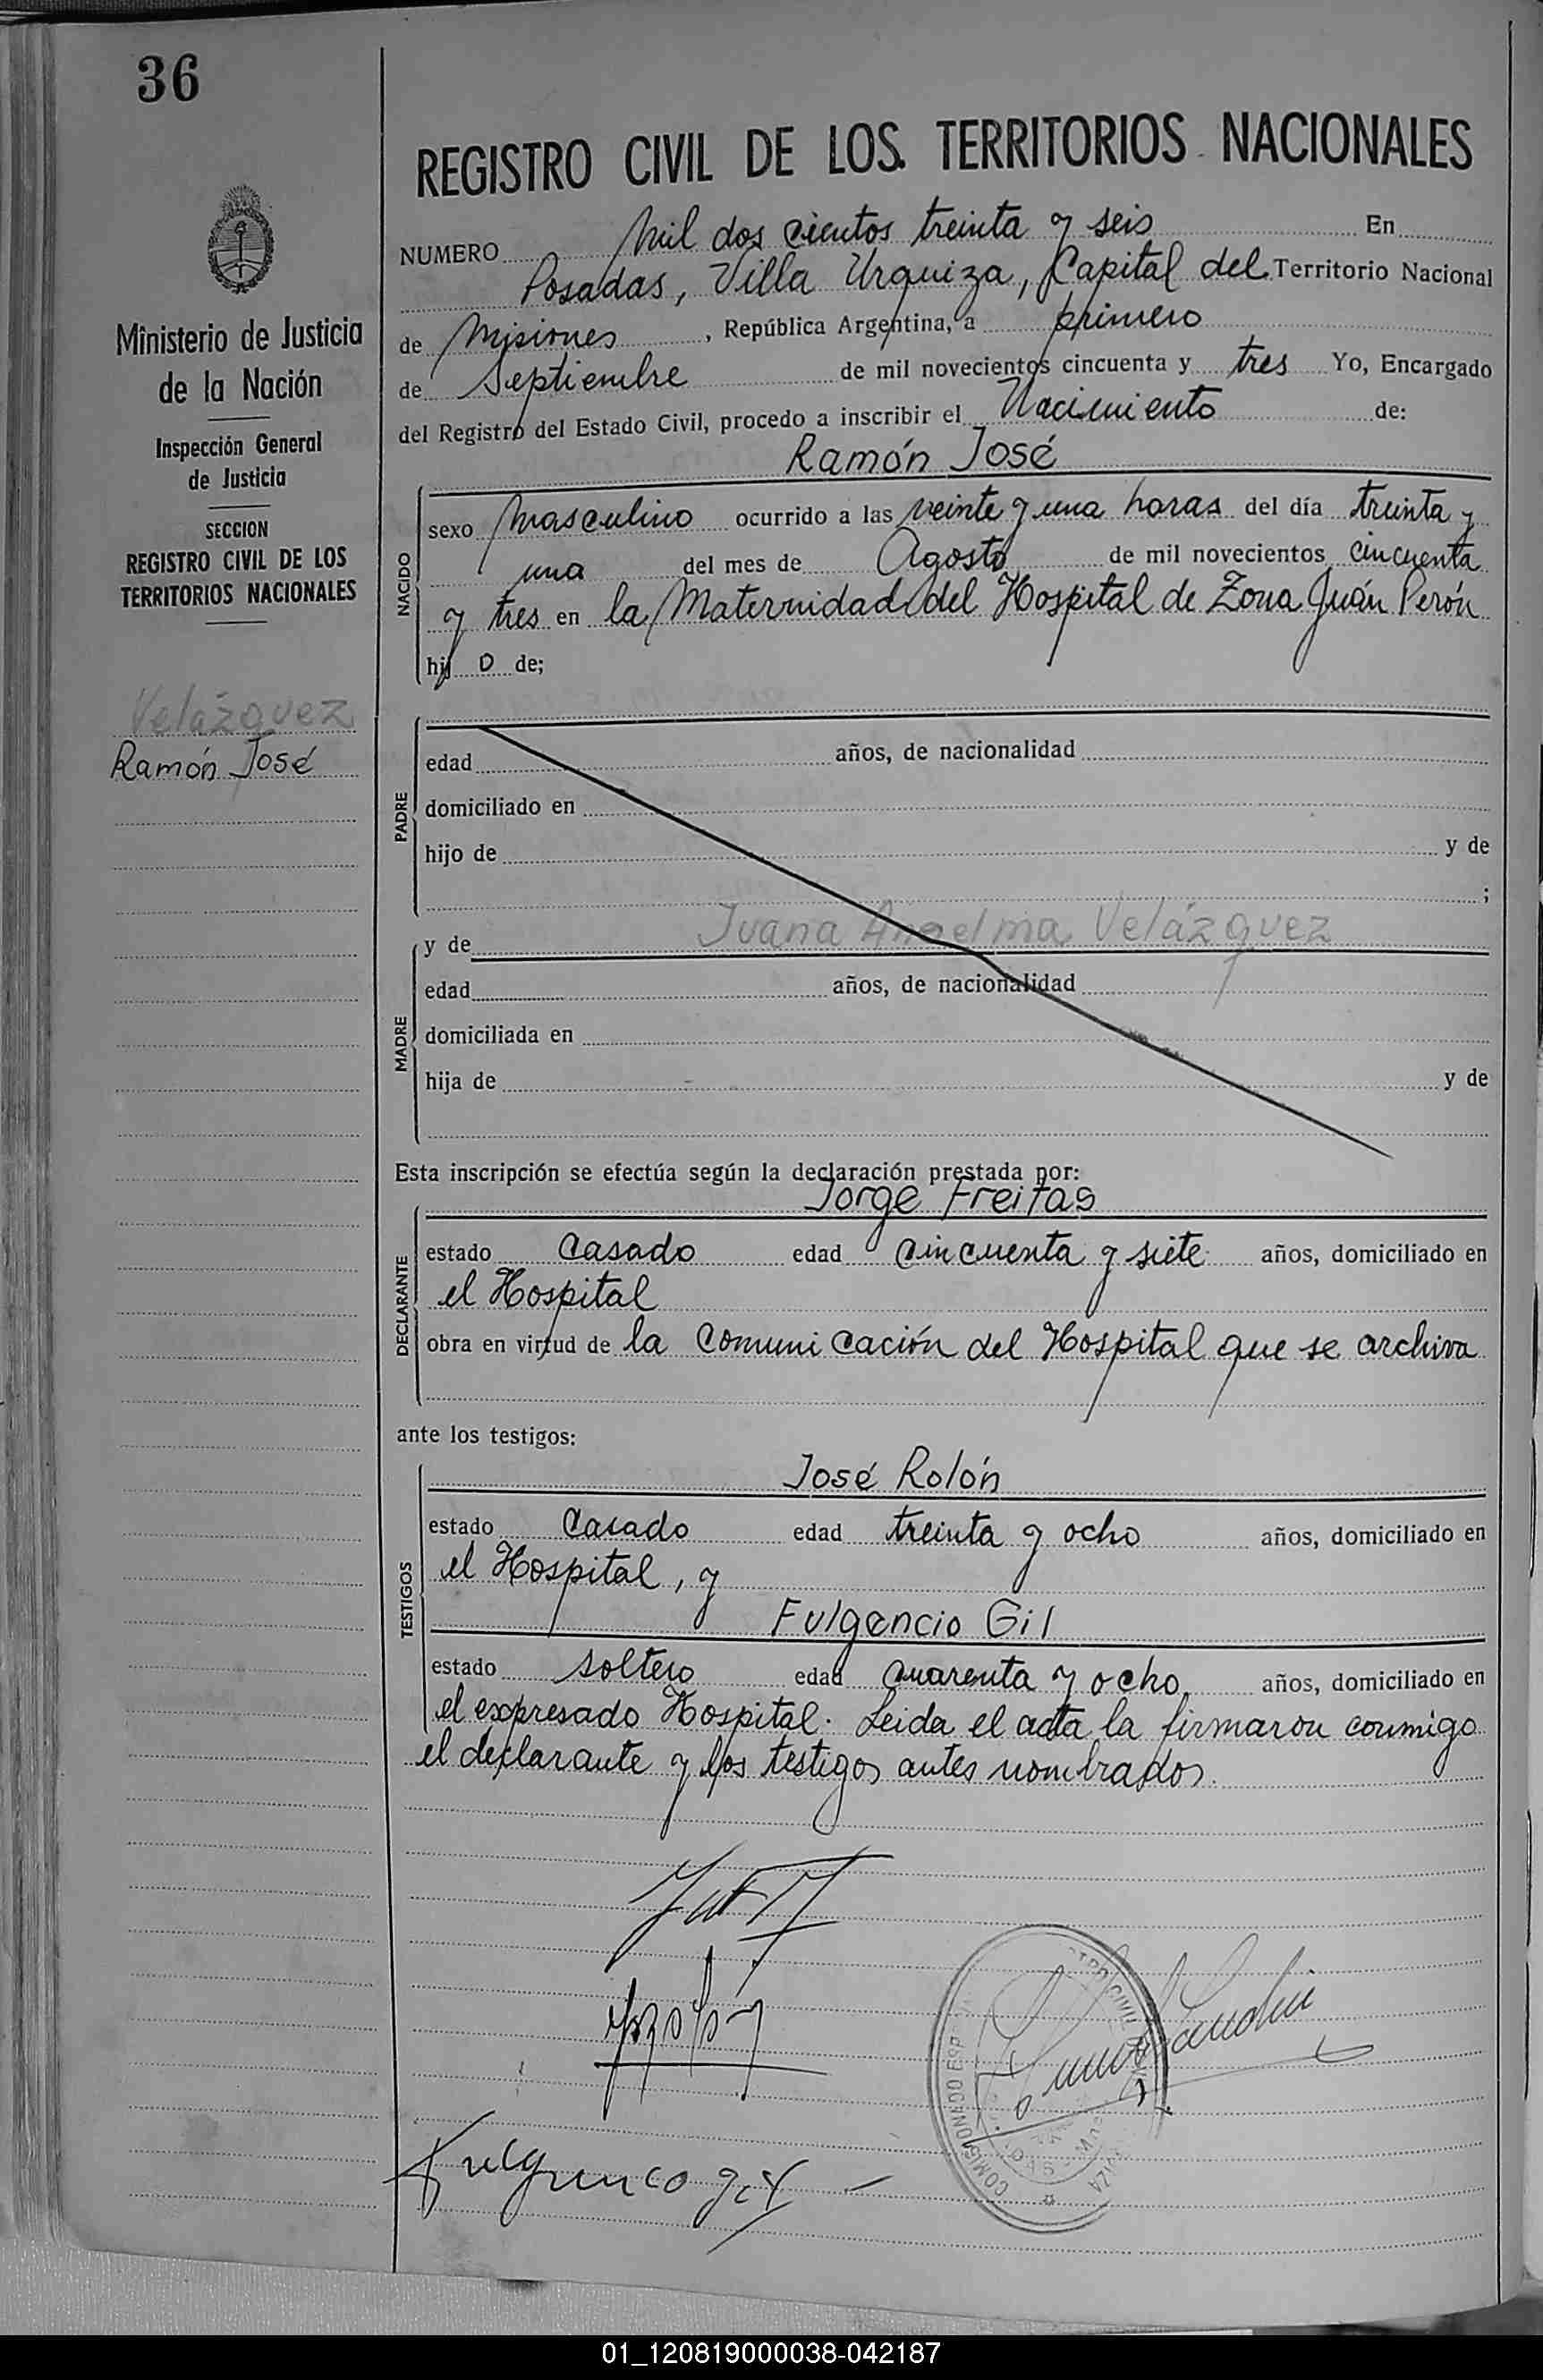 36
REGISTRO CIVIL DE LOS TERRITORIOS NACIONALES
Ministerio de Justicia
de la Nación
Inspección General
de Justicia
SECCION
REGISTRO CIVIL DE LOS
TERRITORIOS NACIONALES
Velázquez
Ramón José
NUMERO Mil dos cientos treinta y seis En
Posadas, Villa Urquiza, Capital del Territorio Nacional
de Misiones, República Argentina, a primero
de Septiembre de mil novecientos cincuenta y tres Yo, Encargado
del Registro del Estado Civil, procedo a inscribir el Nacimiento de:
Ramón José
NACIDO
sexo masculino ocurrido a las veinte y una horas del día treinta y
una del mes de Agosto de mil novecientos cincuenta
y tres en la Maternidad del Hospital de Zona Juán Perón
hij o de;
PADRE
edad años, de nacionalidad
domiciliado en
hijo de y de
;
MADRE
y de Juana Angelma Velázquez
edad años, de nacionalidad
domiciliada en
hija de y de
Esta inscripción se efectúa según la declaración prestada por:
Jorge Freitas
DECLARANTE
estado Casado edad cincuenta y siete años, domiciliado en
el Hospital
obra en virtud de la comunicación del Hospital que se archiva
ante los testigos:
José Rolón
TESTIGOS
estado Casado edad treinta y ocho años, domiciliado en
el Hospital, y
Fulgencio Gil
estado soltero edad cuarenta y ocho años, domiciliado en
el expresado Hospital. Leida el acta la firmaron conmigo
el declarante y los testigos antes nombrados.
01_120819000038-042187